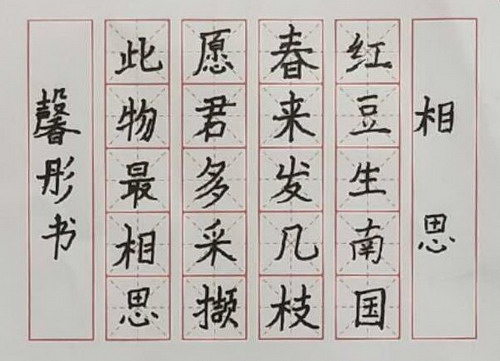 相思
红豆生南国
春来发几枝
愿君多采撷
此物最相思
馨彤书